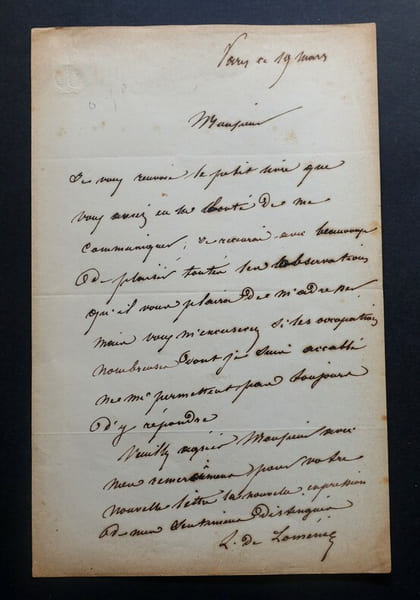 Paris ce 19 mars
Monsieur
Je vous renvoie le petit livre que
vous aviez eu la bonté de me
communiquer, je recevrai avec beaucoup
de plaisir toutes les observations
qu'il vous plaira de m'adresser
mais vous m'excuserez si les occupations
nombreuses dont je suis accablé
ne me permettent pas toujours
d'y répondre
Veuillez agréer Monsieur avec
mes remerciemens pour votre
nouvelle lettre la nouvelle expression
de mes sentimens distingués
L. de Loménie